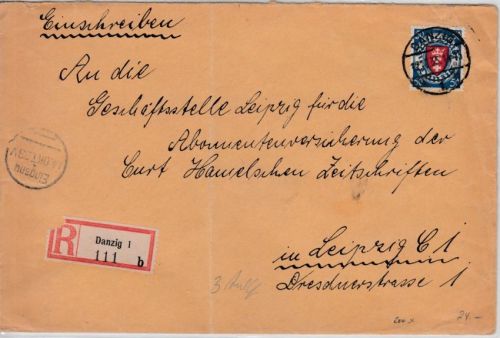 Einschreiben
An die
Geschäftsstelle Leipzig für die
Abonnentenversicherung der
Curt Hamelschen Zeitschriften
Eingang
R
Danzig 1
111 b
in Leipzig C 1
Dresdnerstrasse 1
24.-